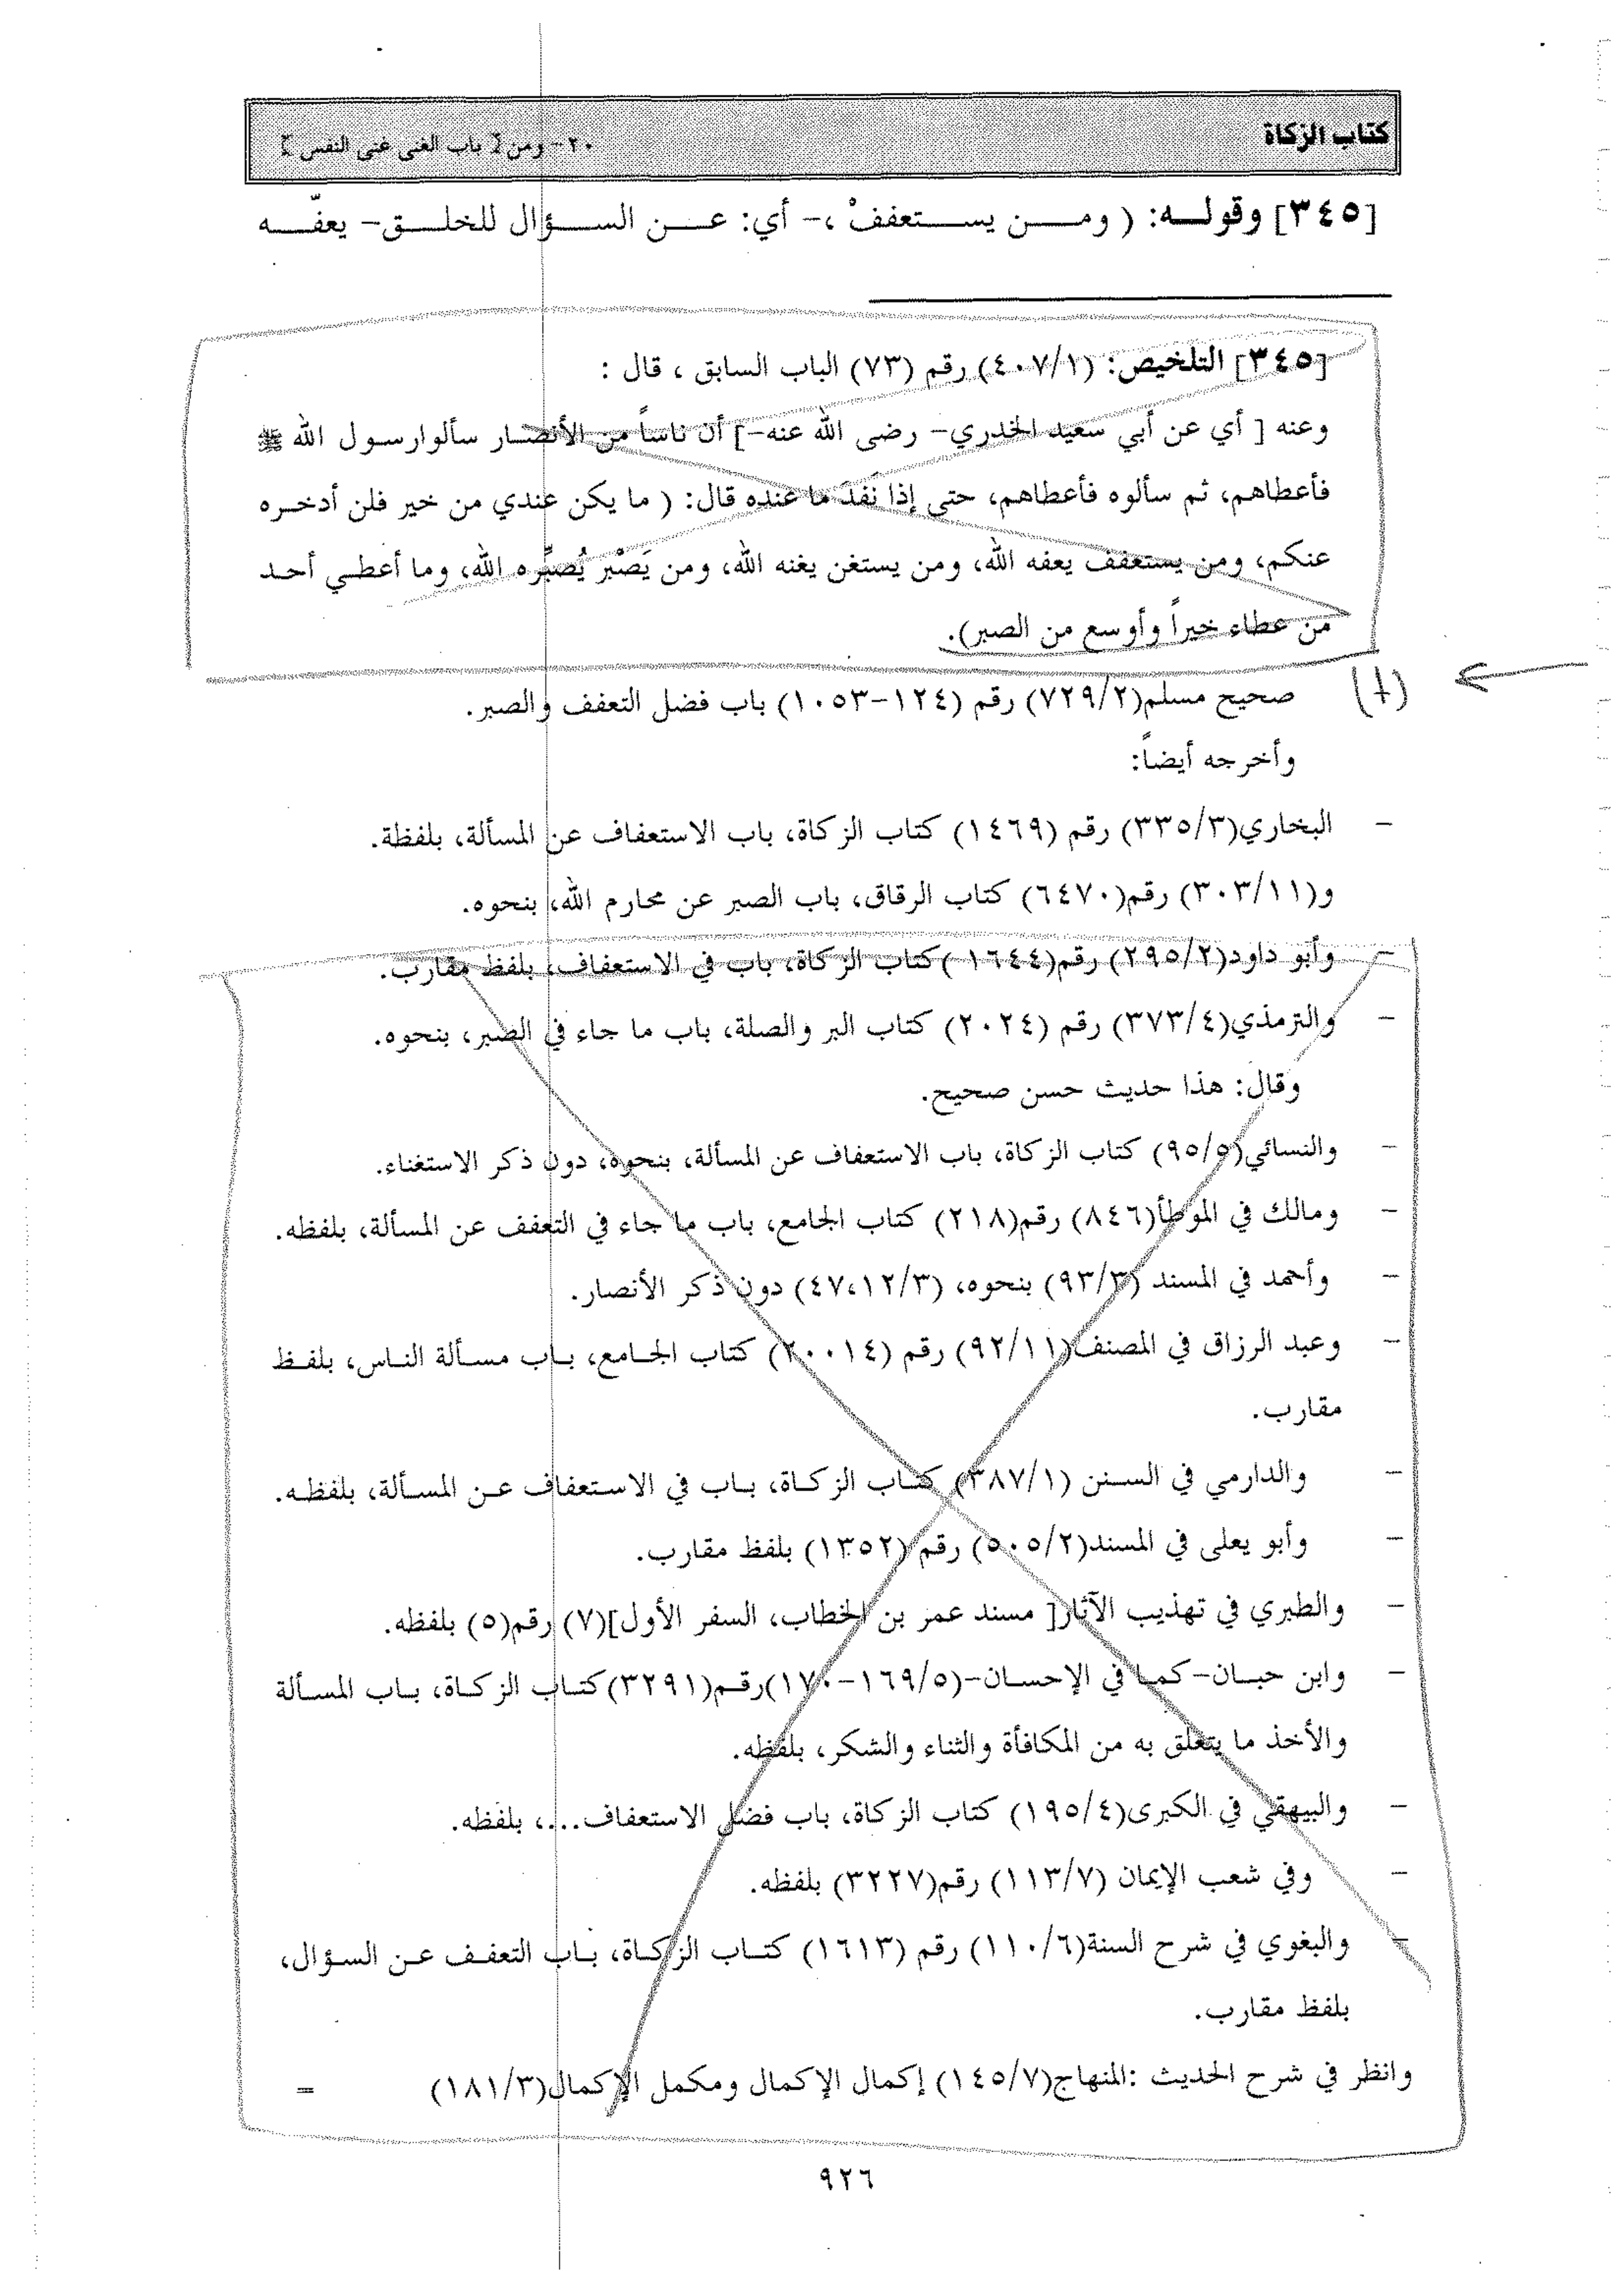 كتاب الزكاة
٢٠- ومن [ باب الغنى غنى النفس ]
[٣٤٥] وقوله: ( ومن يستعففْ ،- أي: عن السؤال للخلق- يعفّه
[٣٤٥] التلخيص: (٤٠٧/١) رقم (٧٣) الباب السابق ، قال :
وعنه [ أي عن أبي سعيد الخدري- رضى الله عنه-] أن ناساً من الأنصار سألوا رسول الله ﷺ
فأعطاهم، ثم سألوه فأعطاهم، حتى إذا نَفَدَ ما عنده قال: ( ما يكن عندي من خير فلن أدخره
عنكم، ومن يستعفف يعفه الله، ومن يستغن يغنه الله، ومن يَصْبر يُصبِّره الله، وما أعطي أحد
من عطاء خيراً وأوسع من الصبر).
صحيح مسلم(٧٢٩/٢) رقم (١٢٤-١٠٥٣) باب فضل التعفف والصبر.
وأخرجه أيضاً:
- البخاري(٣٣٥/٣) رقم (١٤٦٩) كتاب الزكاة، باب الاستعفاف عن المسألة، بلفظة.
و(٣٠٣/١١) رقم(٦٤٧٠) كتاب الرقاق، باب الصبر عن محارم الله، بنحوه.
- وأبو داود(٢٩٥/٢) رقم(١٦٤٤ )كتاب الزكاة، باب في الاستعفاف، بلفظ مقارب.
- والترمذي(٣٧٣/٤) رقم (٢٠٢٤) كتاب البر والصلة، باب ما جاء في الصبر، بنحوه.
وقال: هذا حديث حسن صحيح.
- والنسائي(٩٥/٥) كتاب الزكاة، باب الاستعفاف عن المسألة، بنحوه، دون ذكر الاستغناء.
- ومالك في الموطأ(٨٤٦) رقم(٢١٨) كتاب الجامع، باب ما جاء في التعفف عن المسألة، بلفظه.
- وأحمد في المسند (٩٣/٣) بنحوه، (٤٧،١٢/٣) دون ذكر الأنصار.
- وعبد الرزاق في المصنف(٩٢/١١) رقم (٢٠٠١٤) كتاب الجامع، باب مسألة الناس، بلفظ
مقارب.
- والدارمي في السنن (٣٨٧/١) كتاب الزكاة، باب في الاستعفاف عن المسألة، بلفظه.
- وأبو يعلى في المسند(٥٠٥/٢) رقم (١٣٥٢) بلفظ مقارب.
- والطبري في تهذيب الآثار[ مسند عمر بن الخطاب، السفر الأول](٧) رقم(٥) بلفظه.
- وابن حبان-كما في الإحسان-(١٦٩/٥-١٧٠)رقم(٣٢٩١)كتاب الزكاة، باب المسألة
والأخذ ما يتعلق به من المكافأة والثناء والشكر، بلفظه.
- والبيهقي في الكبرى(١٩٥/٤) كتاب الزكاة، باب فضل الاستعفاف...، بلفظه.
- وفي شعب الإيمان (١١٣/٧) رقم(٣٢٢٧) بلفظه.
- والبغوي في شرح السنة(١١٠/٦) رقم (١٦١٣) كتاب الزكاة، باب التعفف عن السؤال،
بلفظ مقارب.
وانظر في شرح الحديث :المنهاج(١٤٥/٧) إكمال الإكمال ومكمل الإكمال(١٨١/٣) =
٩٢٦